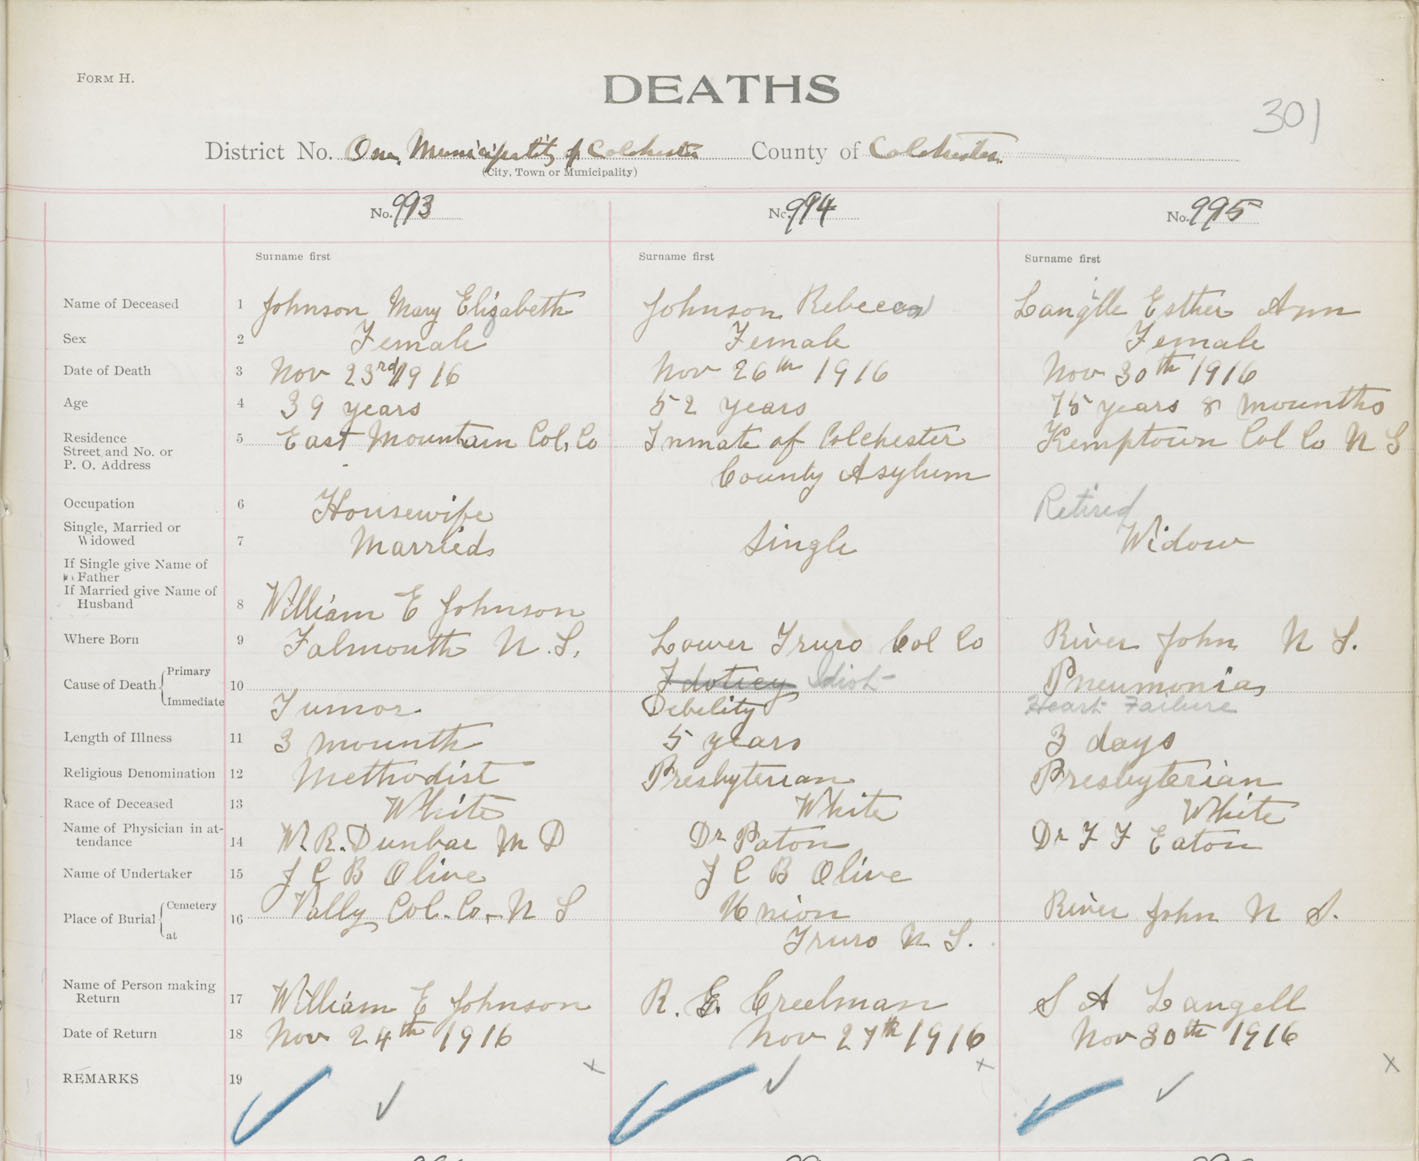 FORM H.
DEATHS
301
District No. One, Municipality of Colchester County of Colchester.
(City, Town or Municipality)
No. 993 No. 994 No. 995
Surname first Surname first Surname first
Name of Deceased 1 Johnson Mary Elizabeth Johnson Rebecca Langille Esther Ann
Sex 2 Female Female Female
Date of Death 3 Nov 23rd 1916 Nov 26th 1916 Nov 30th 1916
Age 4 39 years 52 years 75 years 8 mounths
Residence 5 East Mountain Col. Co Inmate of Colchester Kemptown Col Co N S
Street and No. or
P. O. Address County Asylum
Occupation 6 Housewife Retired
Single, Married or
Widowed 7 Married Single Widow
If Single give Name of
Father
If Married give Name of
Husband 8 William E Johnson
Where Born 9 Falmouth N. S. Lower Truro Col Co River John N S.
Cause of Death Primary 10 Idoticy Idiot Pneumonia
Immediate Tumor Debility Heart Failure
Length of Illness 11 3 mounth 5 years 3 days
Religious Denomination 12 Methodist Presbyterian Presbyterian
Race of Deceased 13 White White White
Name of Physician in at-
tendance 14 W. R. Dunbar M D Dr Paton Dr F F Eaton
Name of Undertaker 15 J C B Olive J C B Olive
Place of Burial Cemetery 16 Vally Col. Co. N S Union River John N S.
at Truro N S.
Name of Person making
Return 17 William E Johnson R. E. Creelman S A Langell
Date of Return 18 Nov 24th 1916 Nov 27th 1916 Nov 30th 1916
REMARKS 19